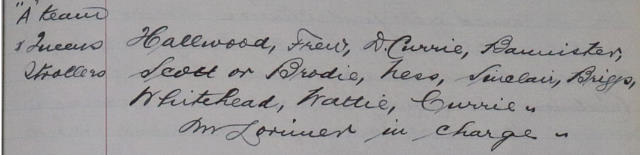 "A" team
v Queens Hallwood, Frew, D. Currie, Bannister,
Strollers Scott or Brodie, Ness, Sinclair, Briggs,
Whitehead, Wattie, Currie "
Mr Lorimer in charge "